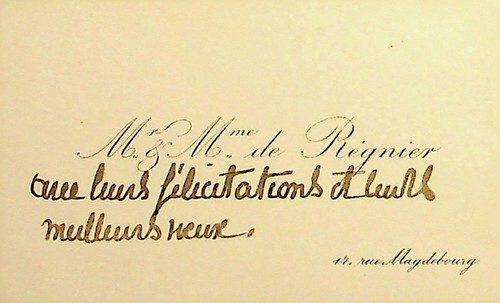 Mr. & Mme. de Régnier
avec leurs félicitations et leurs
meilleurs vœux.
14, rue Magdebourg